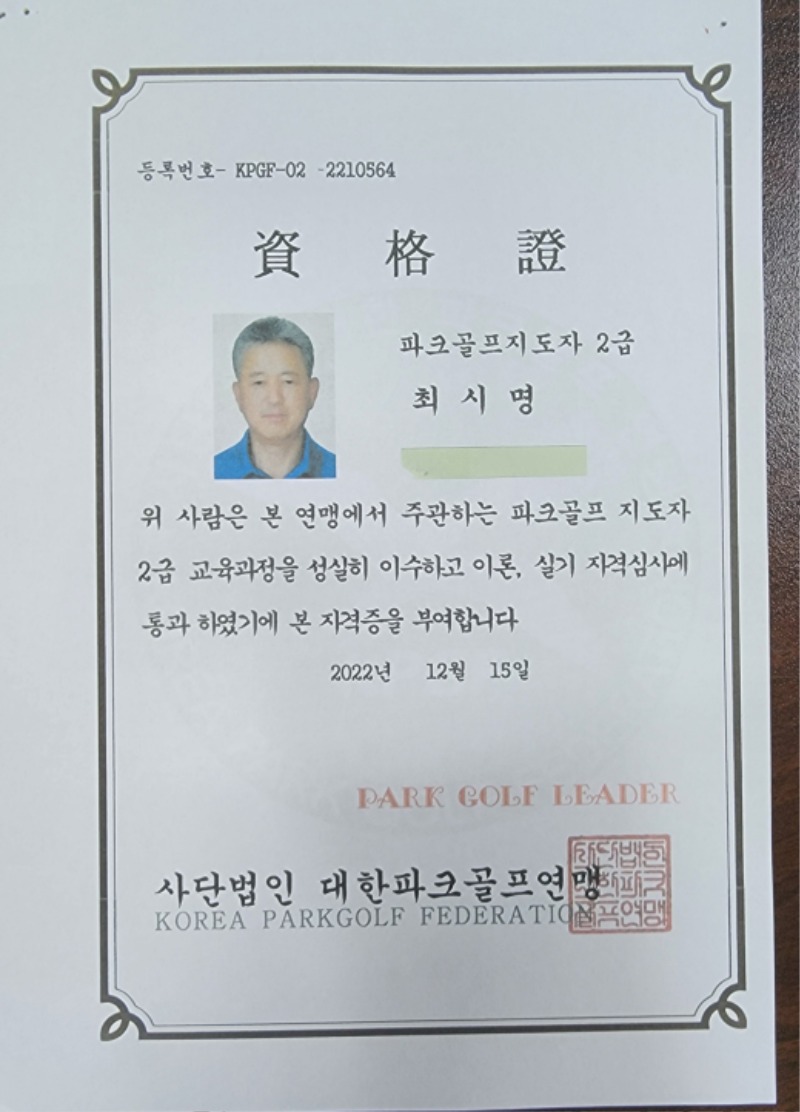 등록번호- KPGF-02 -2210564
資 格 證
파크골프지도자 2급
최 시 명
위 사람은 본 연맹에서 주관하는 파크골프 지도자
2급 교육과정을 성실히 이수하고 이론, 실기 자격심사에
통과 하였기에 본 자격증을 부여합니다
2022년 12월 15일
PARK GOLF LEADER
사단법인 대한파크골프연맹
KOREA PARKGOLF FEDERATION